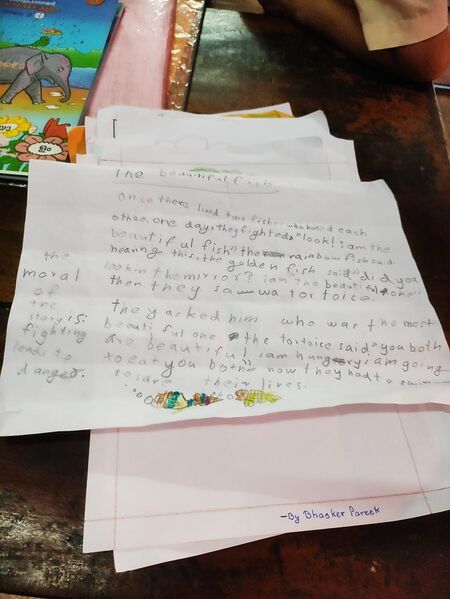 The beautiful fish
Once there lived two fishes who hated each
other. one day they fighted "look! i am the
beautiful fish" the rainbow fish said
hearing this, the golden fish said "did you
look in the mirror? i am the beautiful one"
then they saw a tortoise.
they asked him who was the most
beautiful one the tortoise said "you both
are beautiful i am hungry i am going
to eat you both" now they had to swim
to save their lives.
the
moral
of
the
story is:
fighting
leads to
danger.
-By Bhasker Pareek